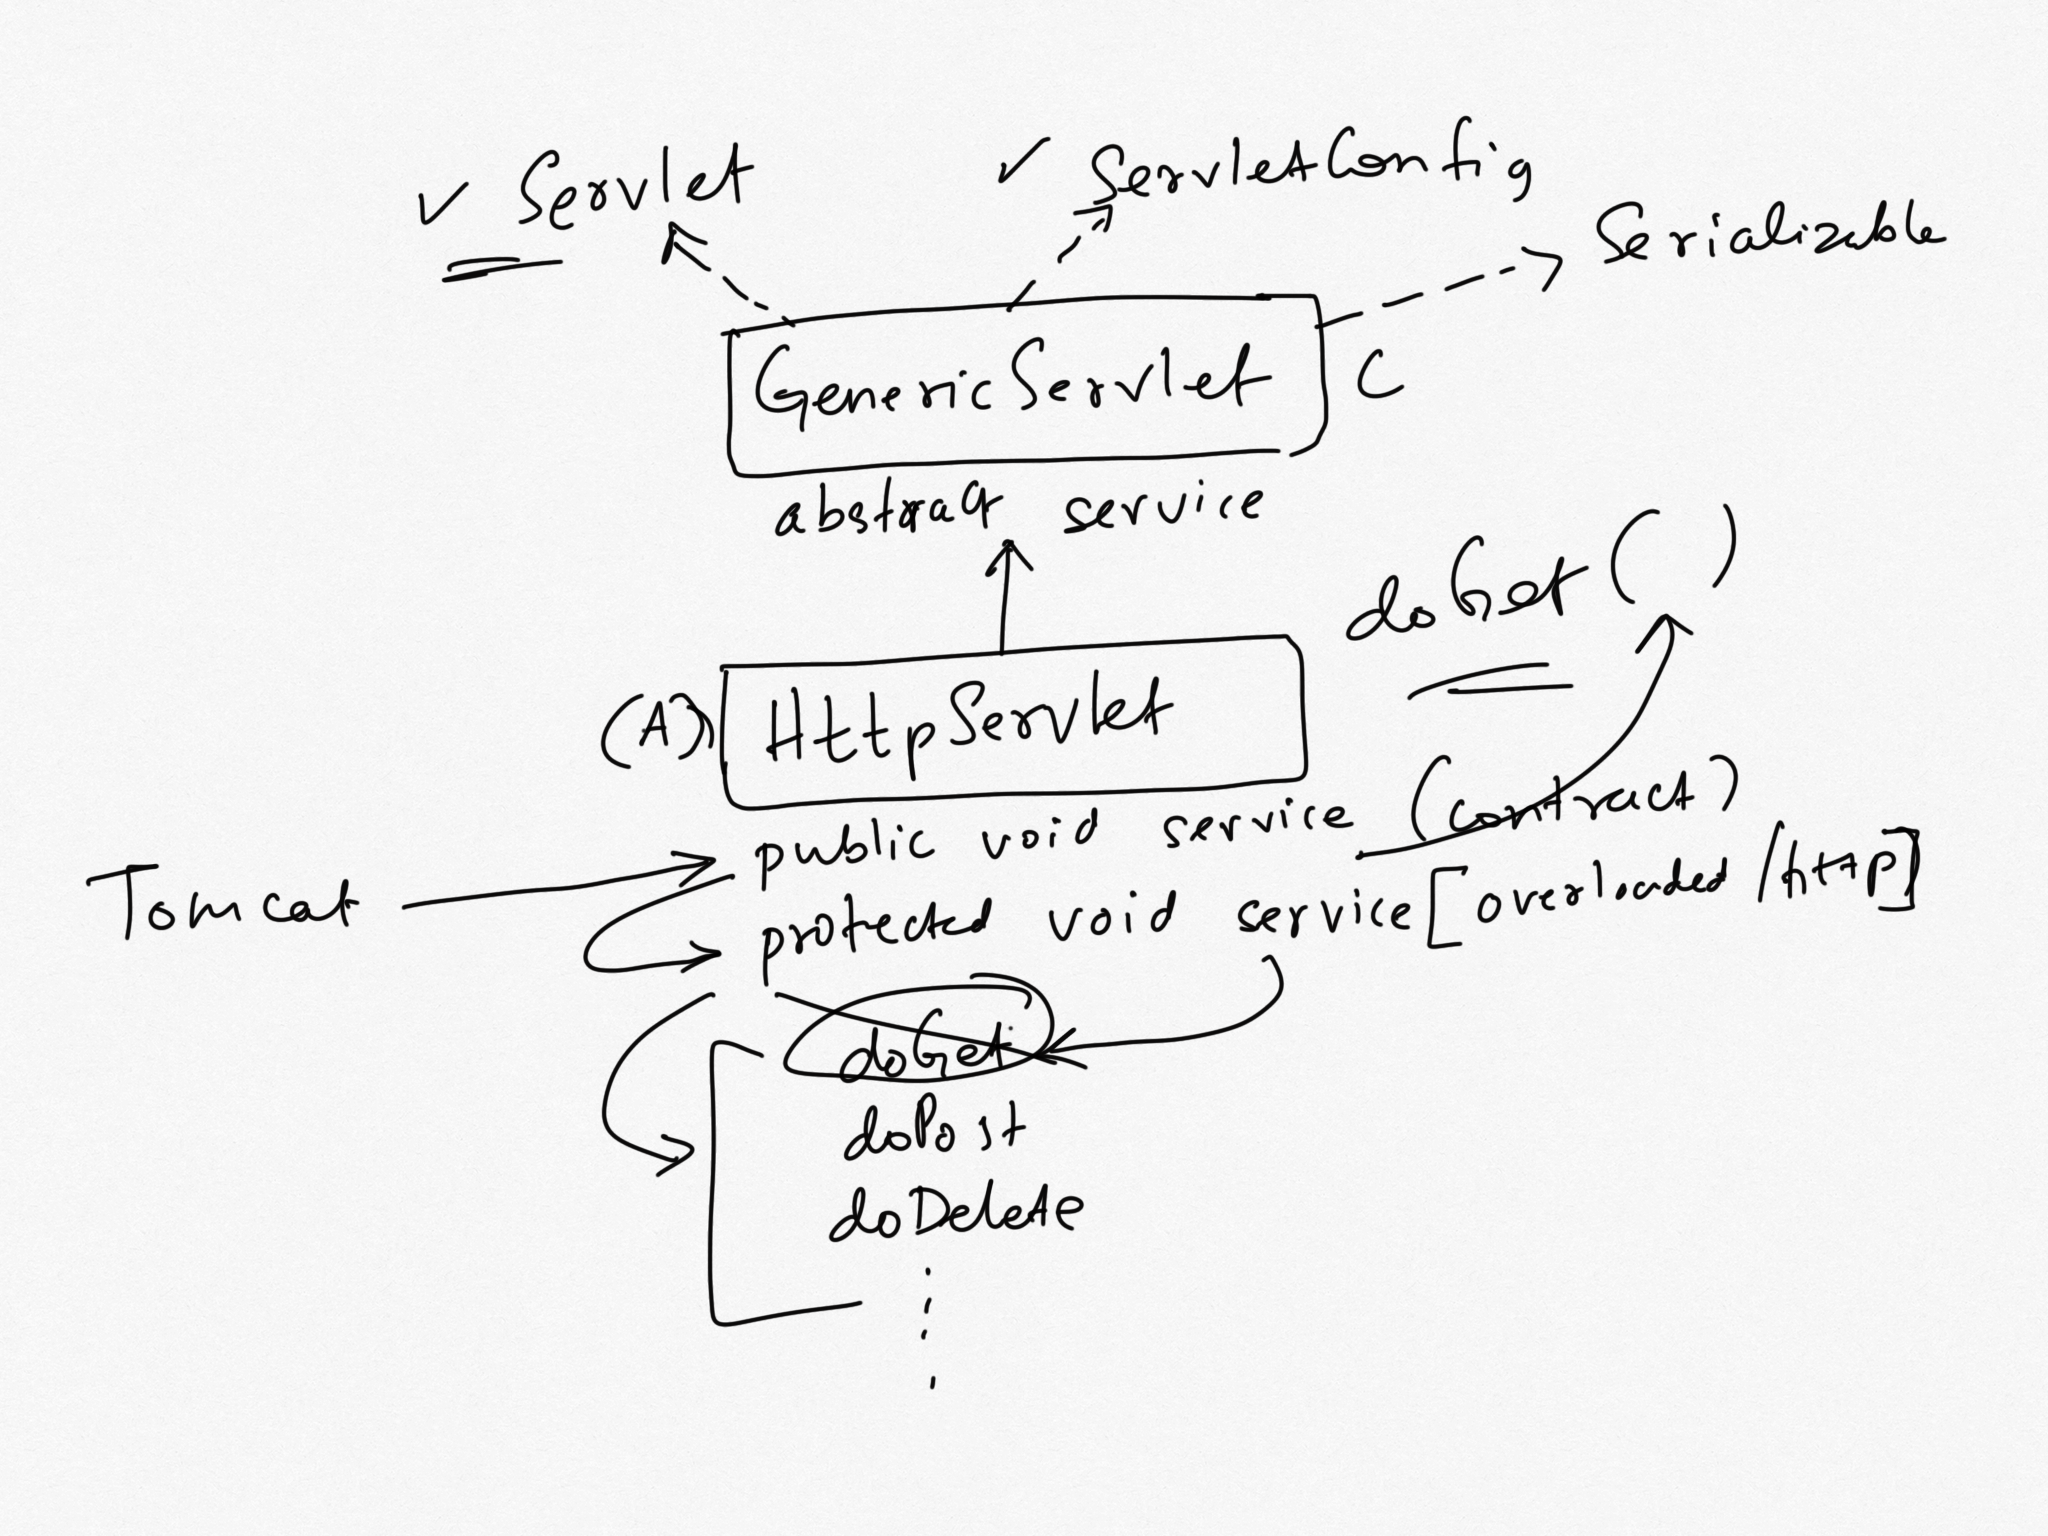 ✓ Servlet
✓ ServletConfig
Serializable
GenericServlet C
abstract service
doGet( )
(A) HttpServlet
public void service (contract)
Tomcat
protected void service [overloaded/http]
doGet
doPost
doDelete